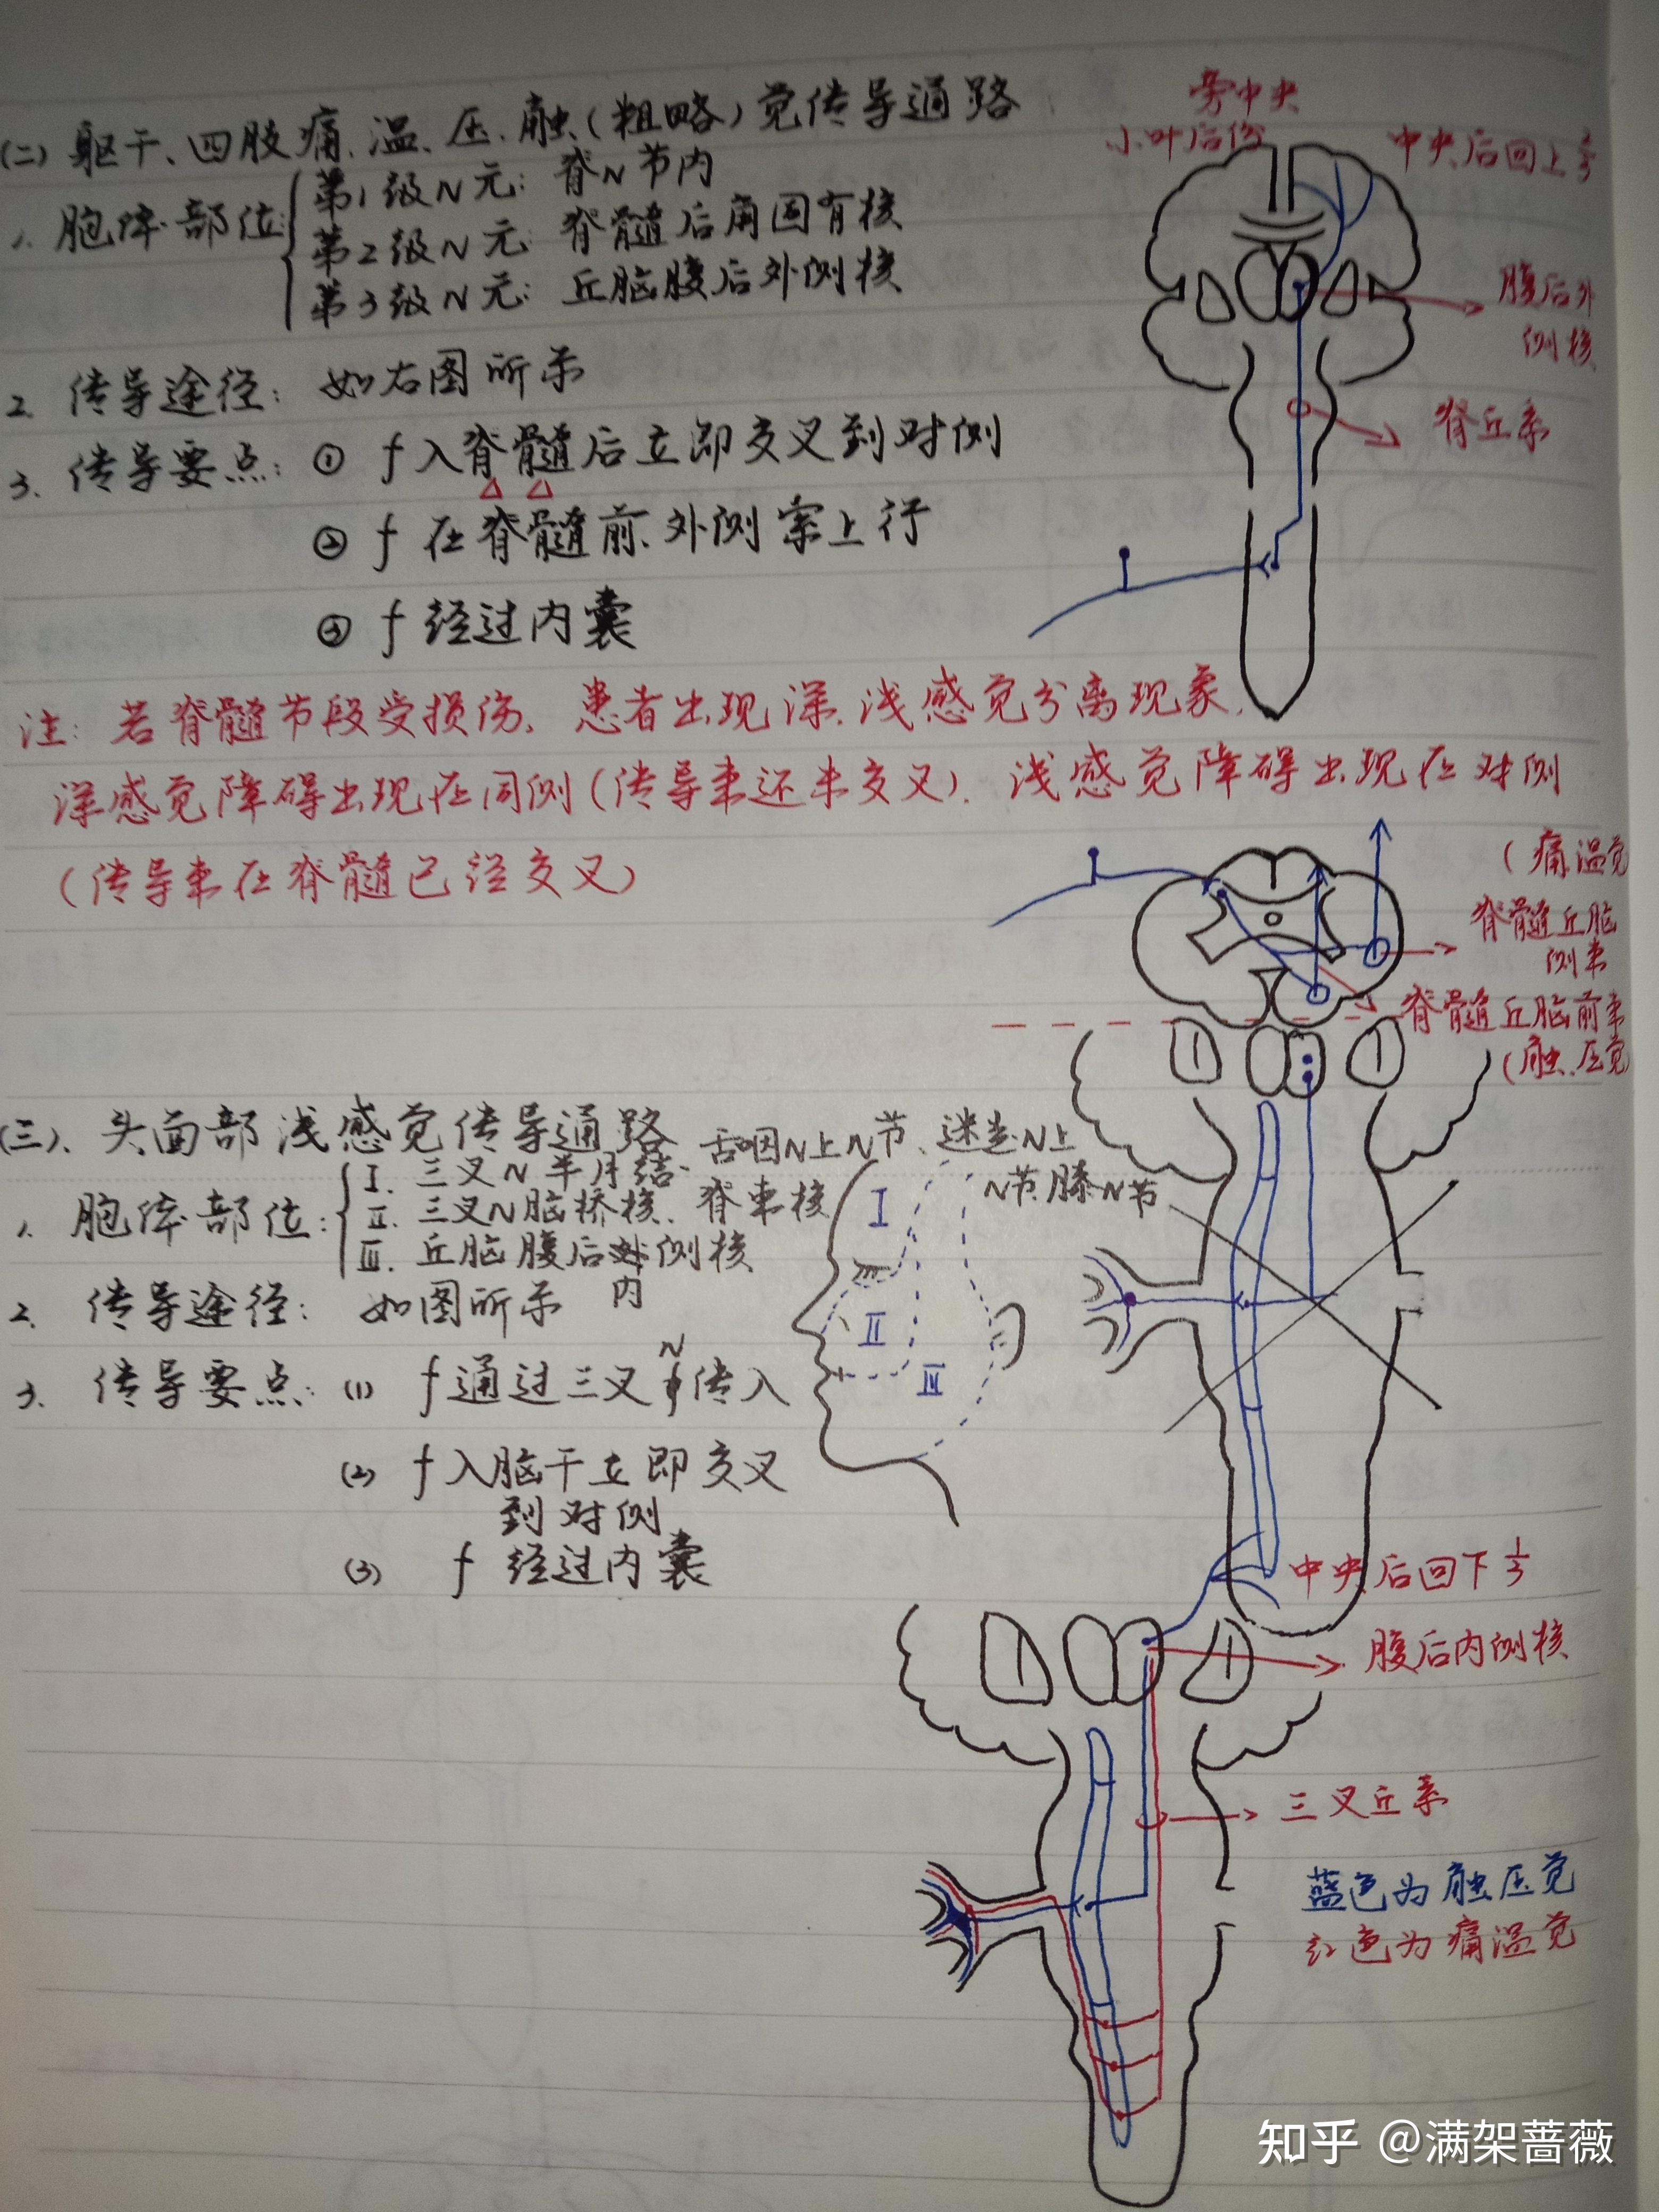 (二) 躯干、四肢痛、温、压、触(粗略)觉传导通路
1. 胞体部位:
第1级N元: 脊N节内
第2级N元: 脊髓后角固有核
第3级N元: 丘脑腹后外侧核
2. 传导途径: 如右图所示
3. 传导要点: ① f入脊髓后立即交叉到对侧
② f在脊髓前、外侧索上行
③ f经过内囊
旁中央
小叶后份
中央后回上2/3
腹后外
侧核
脊丘系
注: 若脊髓节段受损伤、患者出现深、浅感觉分离现象,
深感觉障碍出现在同侧(传导束还未交叉)、浅感觉障碍出现在对侧
(传导束在脊髓已经交叉)
(痛温觉
脊髓丘脑
侧束
脊髓丘脑前束
(触、压觉
(三)、头面部浅感觉传导通路
舌咽N上N节、迷走N上
N节、膝N节
1. 胞体部位:
I. 三叉N半月结、
II. 三叉N脑桥核、脊束核
III. 丘脑腹后内侧核
2. 传导途径: 如图所示
3. 传导要点: (1) f通过三叉N传入
(2) f入脑干立即交叉
到对侧
(3) f经过内囊
I
II
III
中央后回下1/3
腹后内侧核
三叉丘系
蓝色为触压觉
红色为痛温觉
知乎 @满架蔷薇